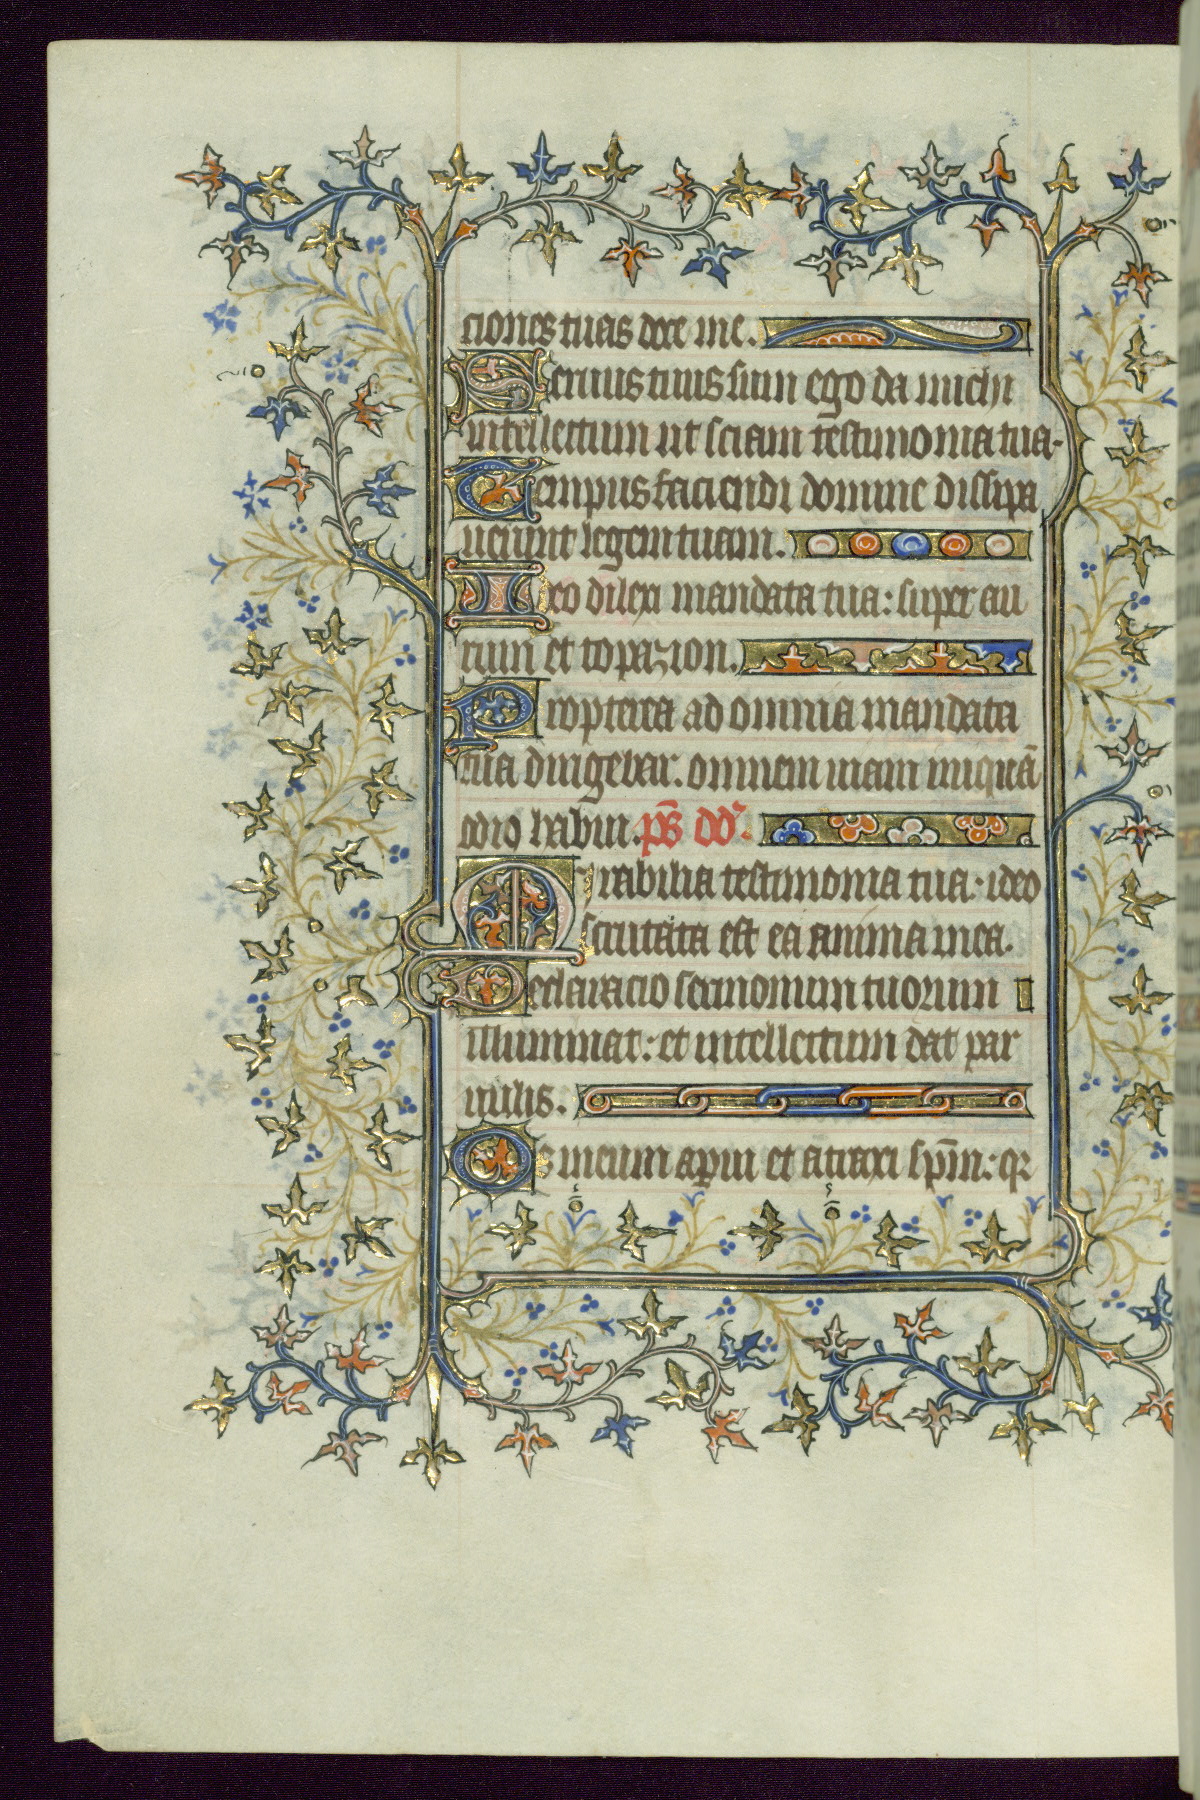 ciones tuas doce me.
Seruus tuus sum ego da michi
intellectum ut sciam testimonia tua.
Tempus faciendi domine dissipa
uerunt legem tuam.
Ideo dilexi mandata tua: super au
rum et topazion.
Propterea ad omnia mandata
tua dirigebar. omnem uiam iniquā
odio habui. ps̄ dd̄.
Mirabilia testimonia tua: ideo
scrutata est ea anima mea.
Declaracio sermonum tuorum
illuminat: et intellectum dat par
uulis.
Os meum aperui et attraxi sp̄m: q̄